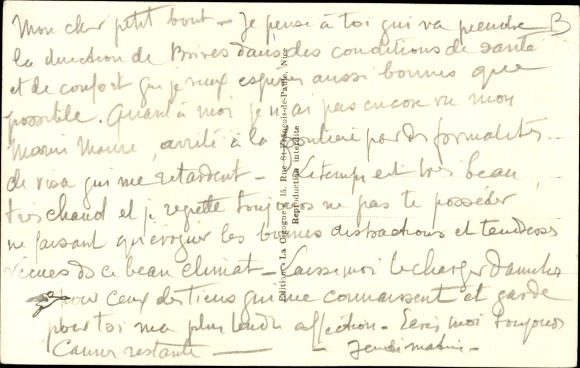 Mon cher petit bout - Je pense à toi qui va prendre B
la direction de Brives dans des conditions de santé
et de confort que je veux espérer aussi bonnes que
possible. Quant à moi je n'ai pas encore vu mon
Marin Maure, arrêté à la frontière par des formalités
de visa qui me retardent - Le temps est très beau,
très chaud et je regrette toujours ne pas te posséder,
ne faisant qu'évoquer les bonnes distractions et tendresses
venues de ce beau climat - Laisse moi te charger d'amitiés
pour ceux des tiens qui me connaissent et garde
pour toi ma plus tendre affection - Ecris moi toujours
Cannes restante - Jeudi matin -
Edition « La Cigogne », 15, Rue St-François-de-Paule, Nice
Reproduction interdite